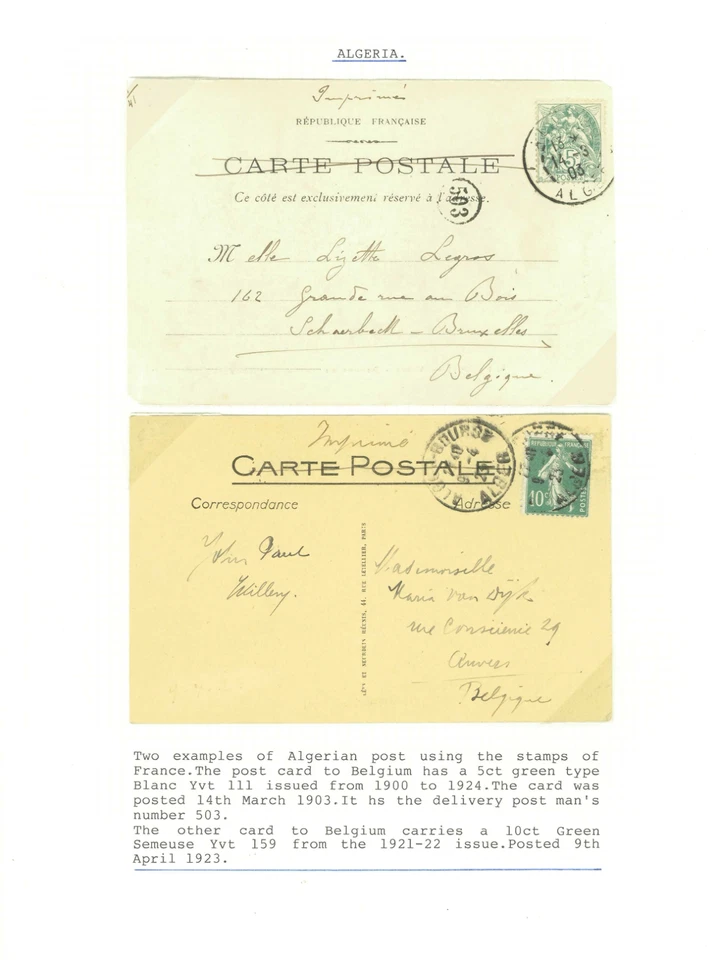 ALGERIA.
Imprimé
RÉPUBLIQUE FRANÇAISE
CARTE POSTALE
Ce côté est exclusivement réservé à l'adresse.
503
14 5
03
ALG
Melle Lizette Legros
162 Grande rue au Bois
Schaerbeek - Bruxelles
Belgique.
Imprimé
CARTE POSTALE
ALGER-BOURSE
ALGER
REPUBLIQUE FRANÇAISE
10c
POSTES
Correspondance
Adresse
Paul
Willery.
Mademoiselle
Maria Van Dijk
rue Conscience 29
Anvers
Belgique
Two examples of Algerian post using the stamps of
France.The post card to Belgium has a 5ct green type
Blanc Yvt 111 issued from 1900 to 1924.The card was
posted 14th March 1903.It hs the delivery post man's
number 503.
The other card to Belgium carries a 10ct Green
Semeuse Yvt 159 from the 1921-22 issue.Posted 9th
April 1923.